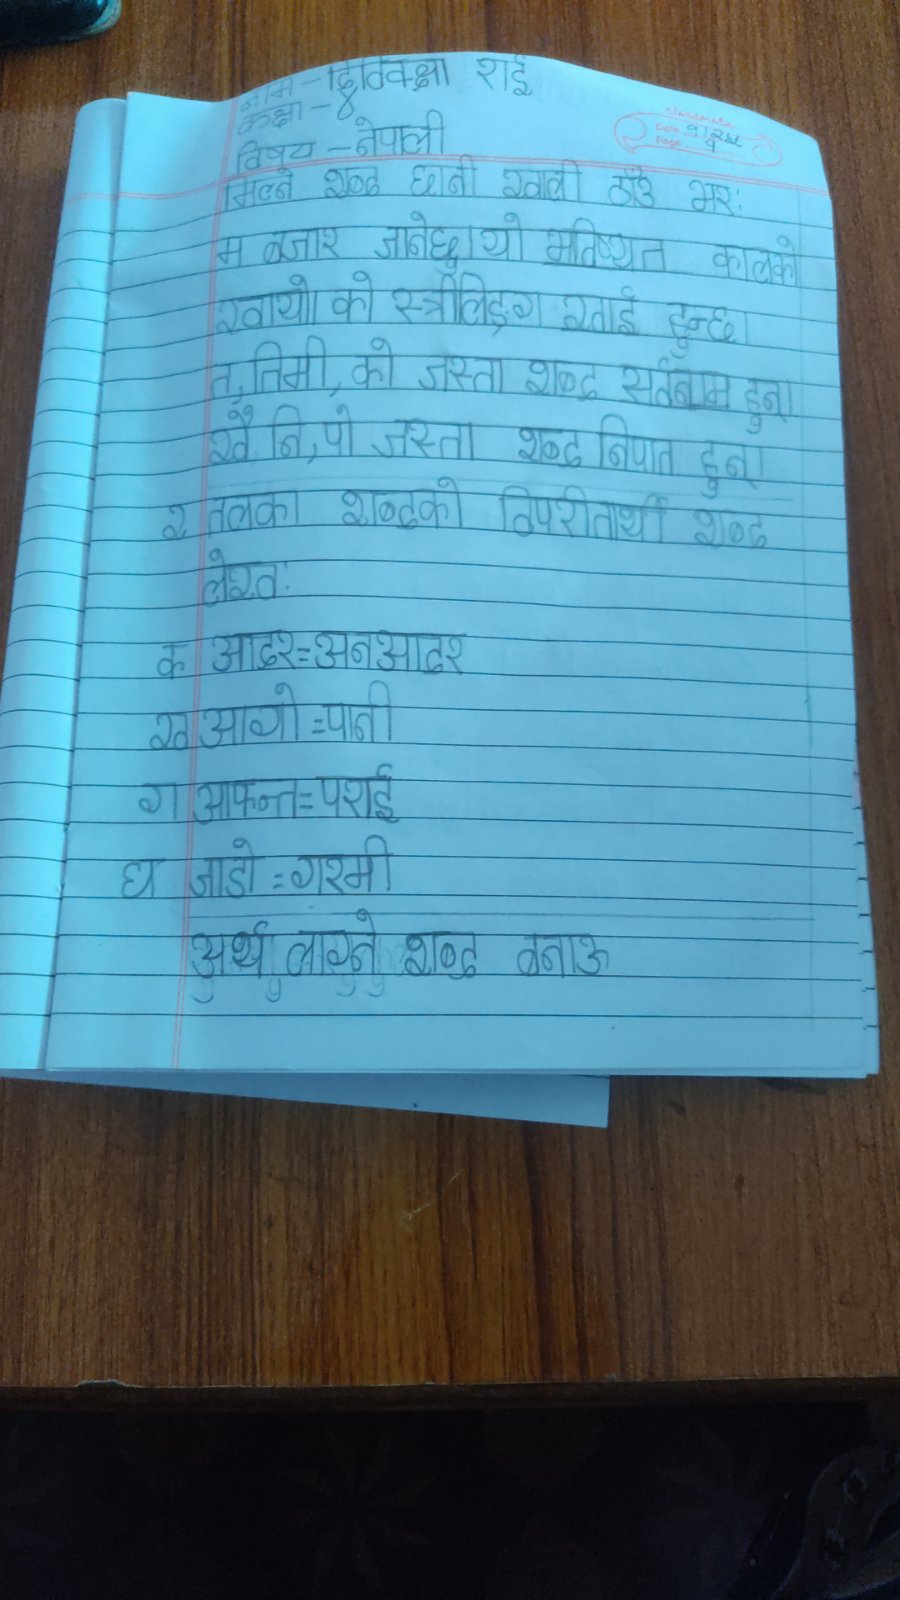 नाम - द्वितिक्षा राई
कक्षा - ४
classmate
Date 9/2
Page 9
विषय - नेपाली
मिल्ने शब्द छानी खाली ठाँउ भर:
म बजार जानेछु। यो भविष्यत कालको
खायो को स्त्रीलिङ्ग खाई हुन्छ।
त, तिमी, को जस्ता शब्द सर्वनाम हुन्।
खै नि, पो जस्ता शब्द निपात हुन्।
२ तलका शब्दको विपरीतार्थी शब्द
लेख:
क आदर = अनआदर
ख आगो = पानी
ग आफन्त = पराई
घ जाडो = गरमी
अर्थ लाग्ने शब्द बनाऊ